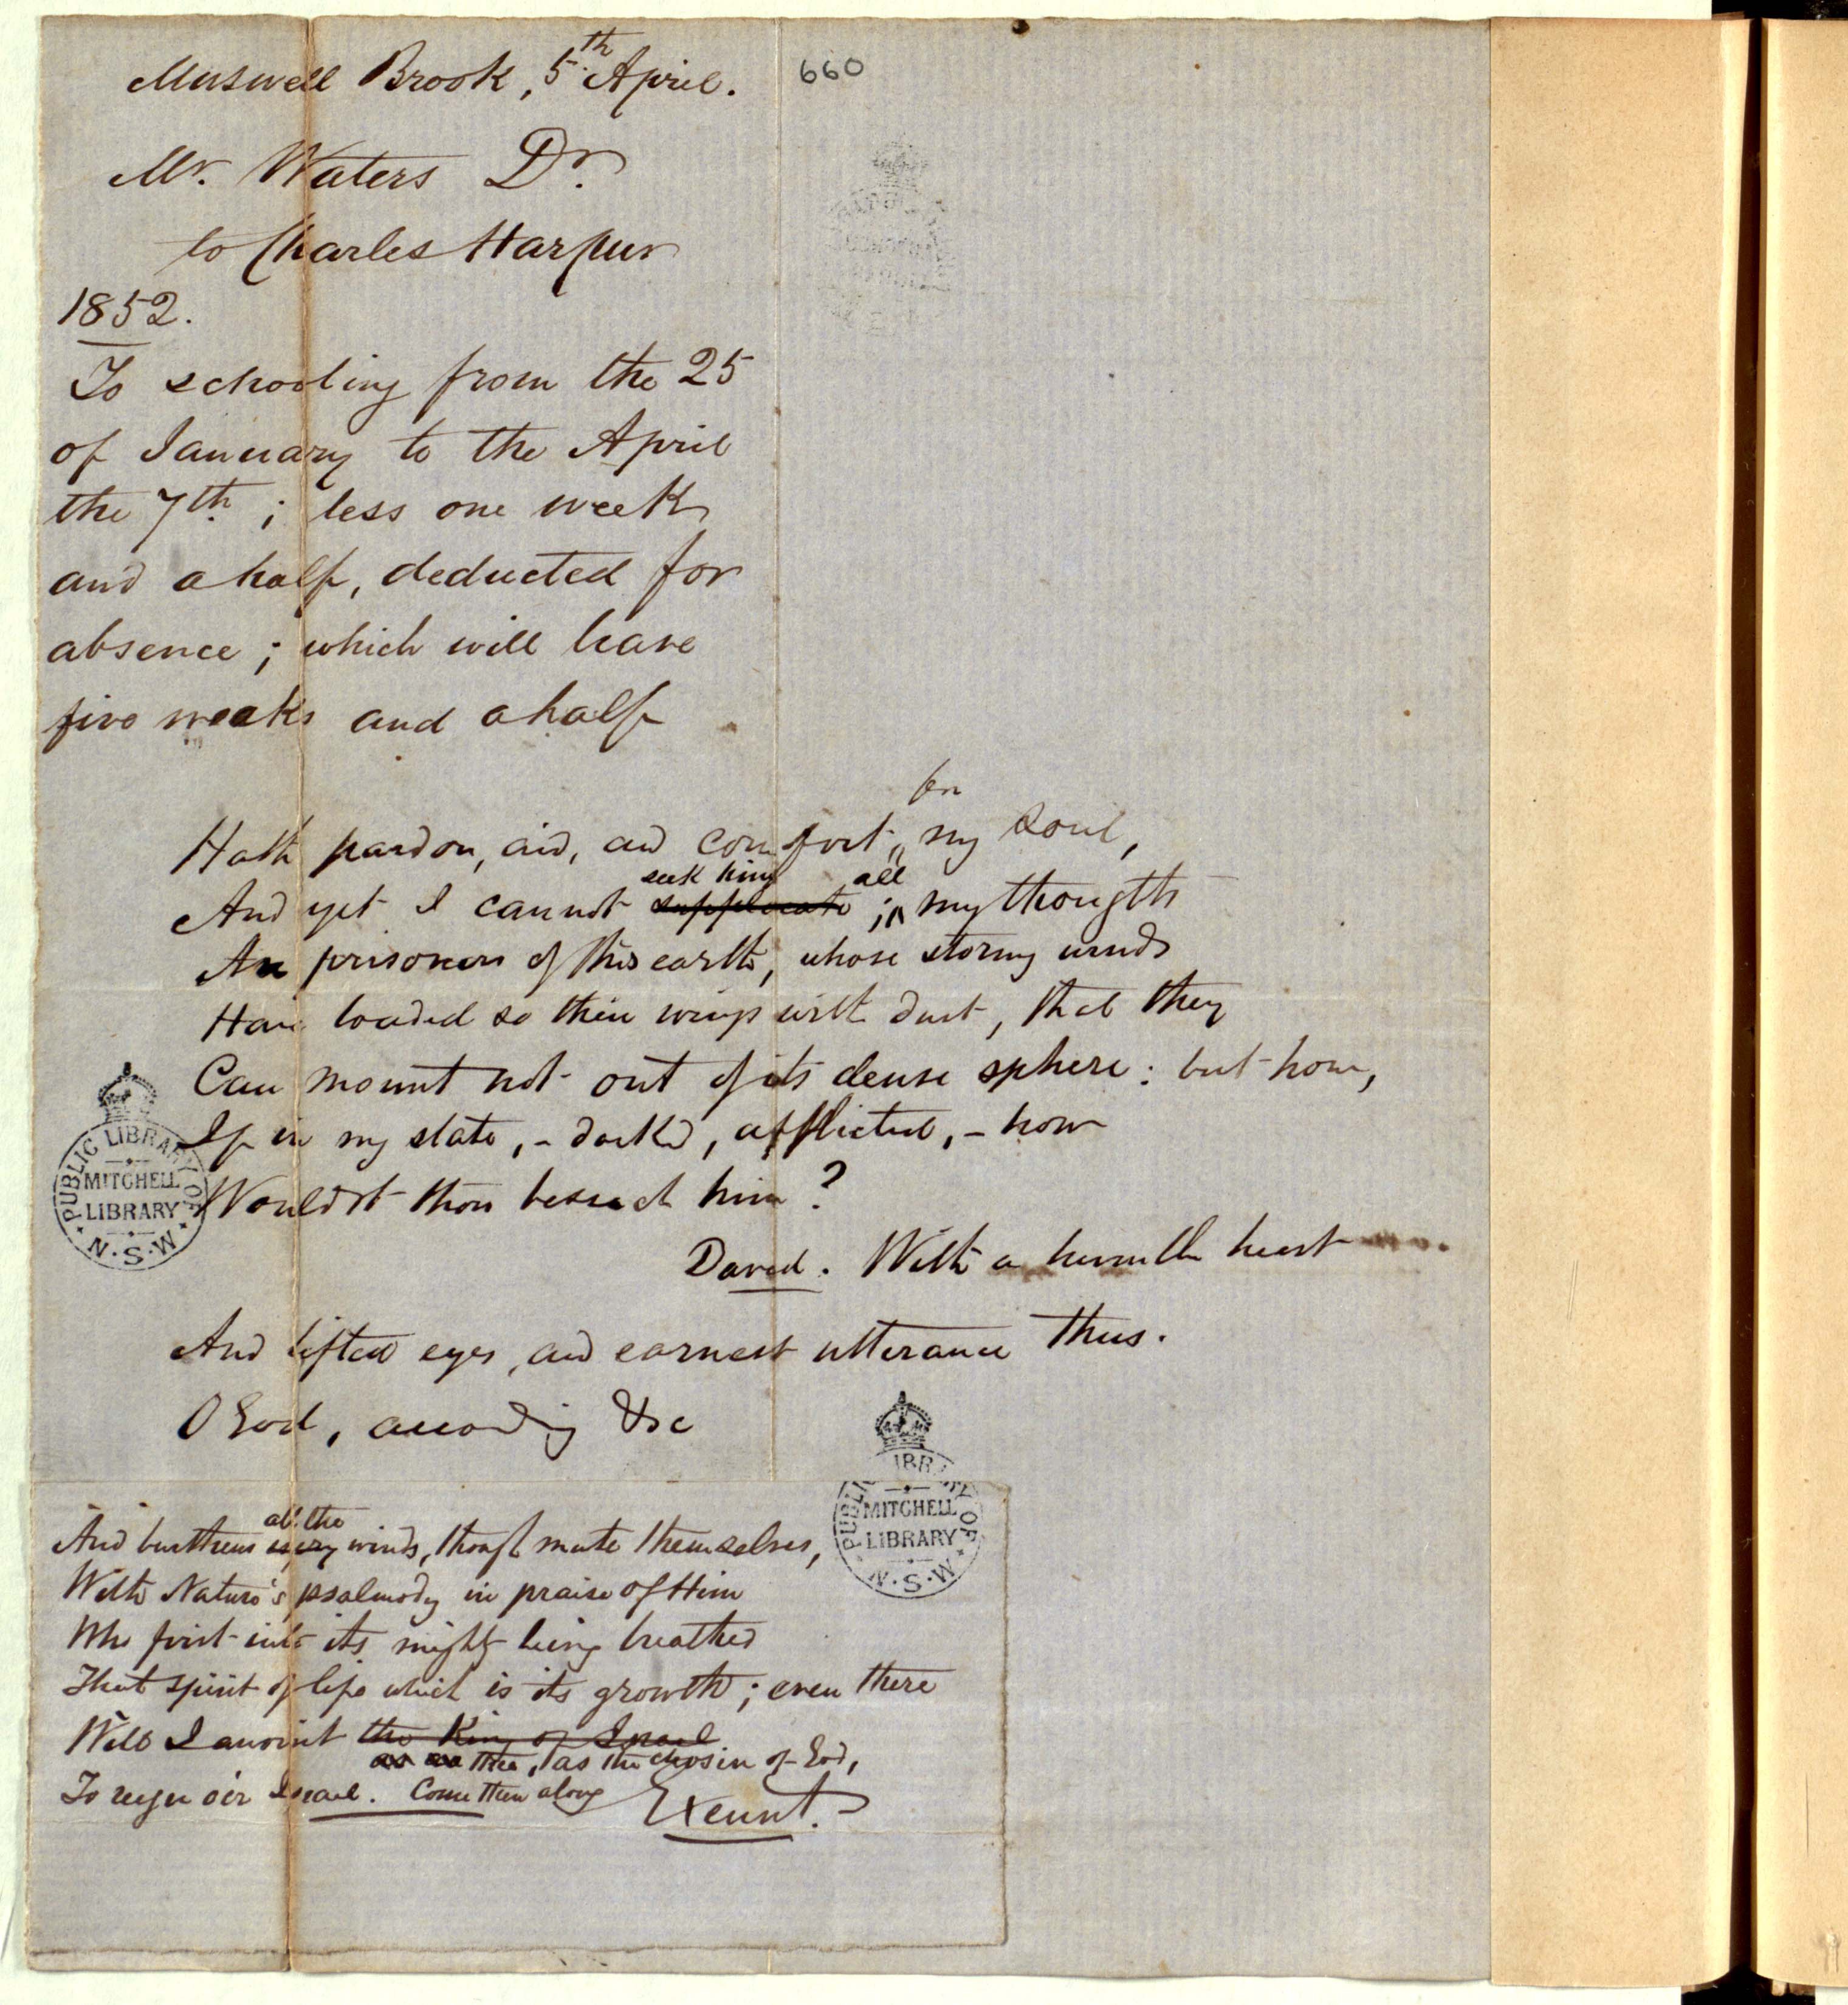 Muswell Brook, 5th April.
660
Mr. Waters Dr.
to Charles Harpur
1852.
To schooling from the 25
of January to the April
the 7th; less one week
and a half, deducted for
absence; which will leave
five weeks and a half
for
Hath pardon, aid, and comfort, my soul,
seek him all
And yet I cannot supplicate; my thougths
Are prisoners of this earth, whose stormy winds
Have loaded so their wings with dust, that they
Can mount not out of its dense sphere: but how,
If in my state, – dark'd, afflicted, – how
Would'st thou beseech him?
David. With a humble heart
And lifted eyes, and earnest utterance thus.
O God, according &c
all the
And burthens every winds, though mute themselves,
With Nature's psalmody in praise of Him
Who first into its might being breathed
That spirit of life which is its growth; even there
Will I anoint the King of Israel
thee, as the chosen of God,
To reign o'er Israel. Come then along
Exeunt.
PUBLIC LIBRARY OF N.S.W.
MITCHELL
LIBRARY
PUBLIC LIBRARY OF N.S.W.
MITCHELL
LIBRARY